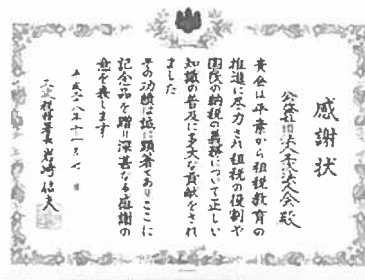 感謝状
公益社団法人 法人会殿
貴会は平素から租税教育の
推進に尽力され租税の役割や
国民の納税の義務について正しい
知識の普及に多大な貢献をされ
ました
その功績は誠に顕著でありここに
記念品を贈り深甚なる感謝の
意を表します
平成二八年十一月 日
税務署長 岩崎信夫